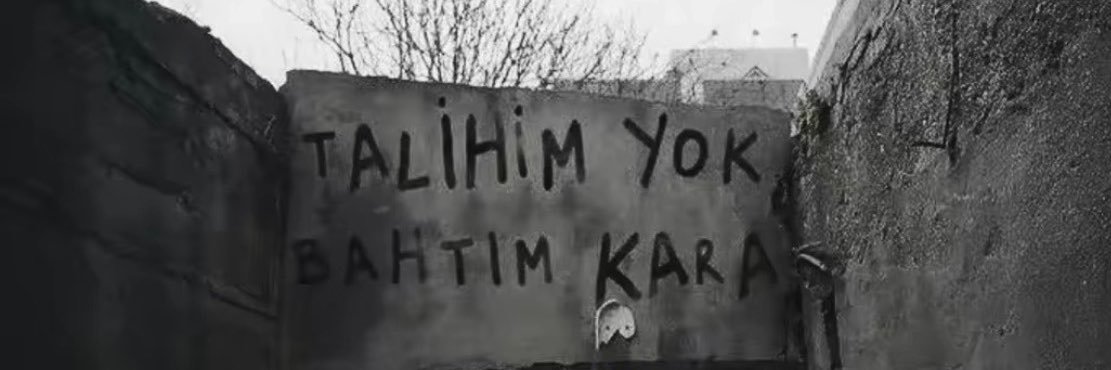 TALİHİM YOK
BAHTIM KARA